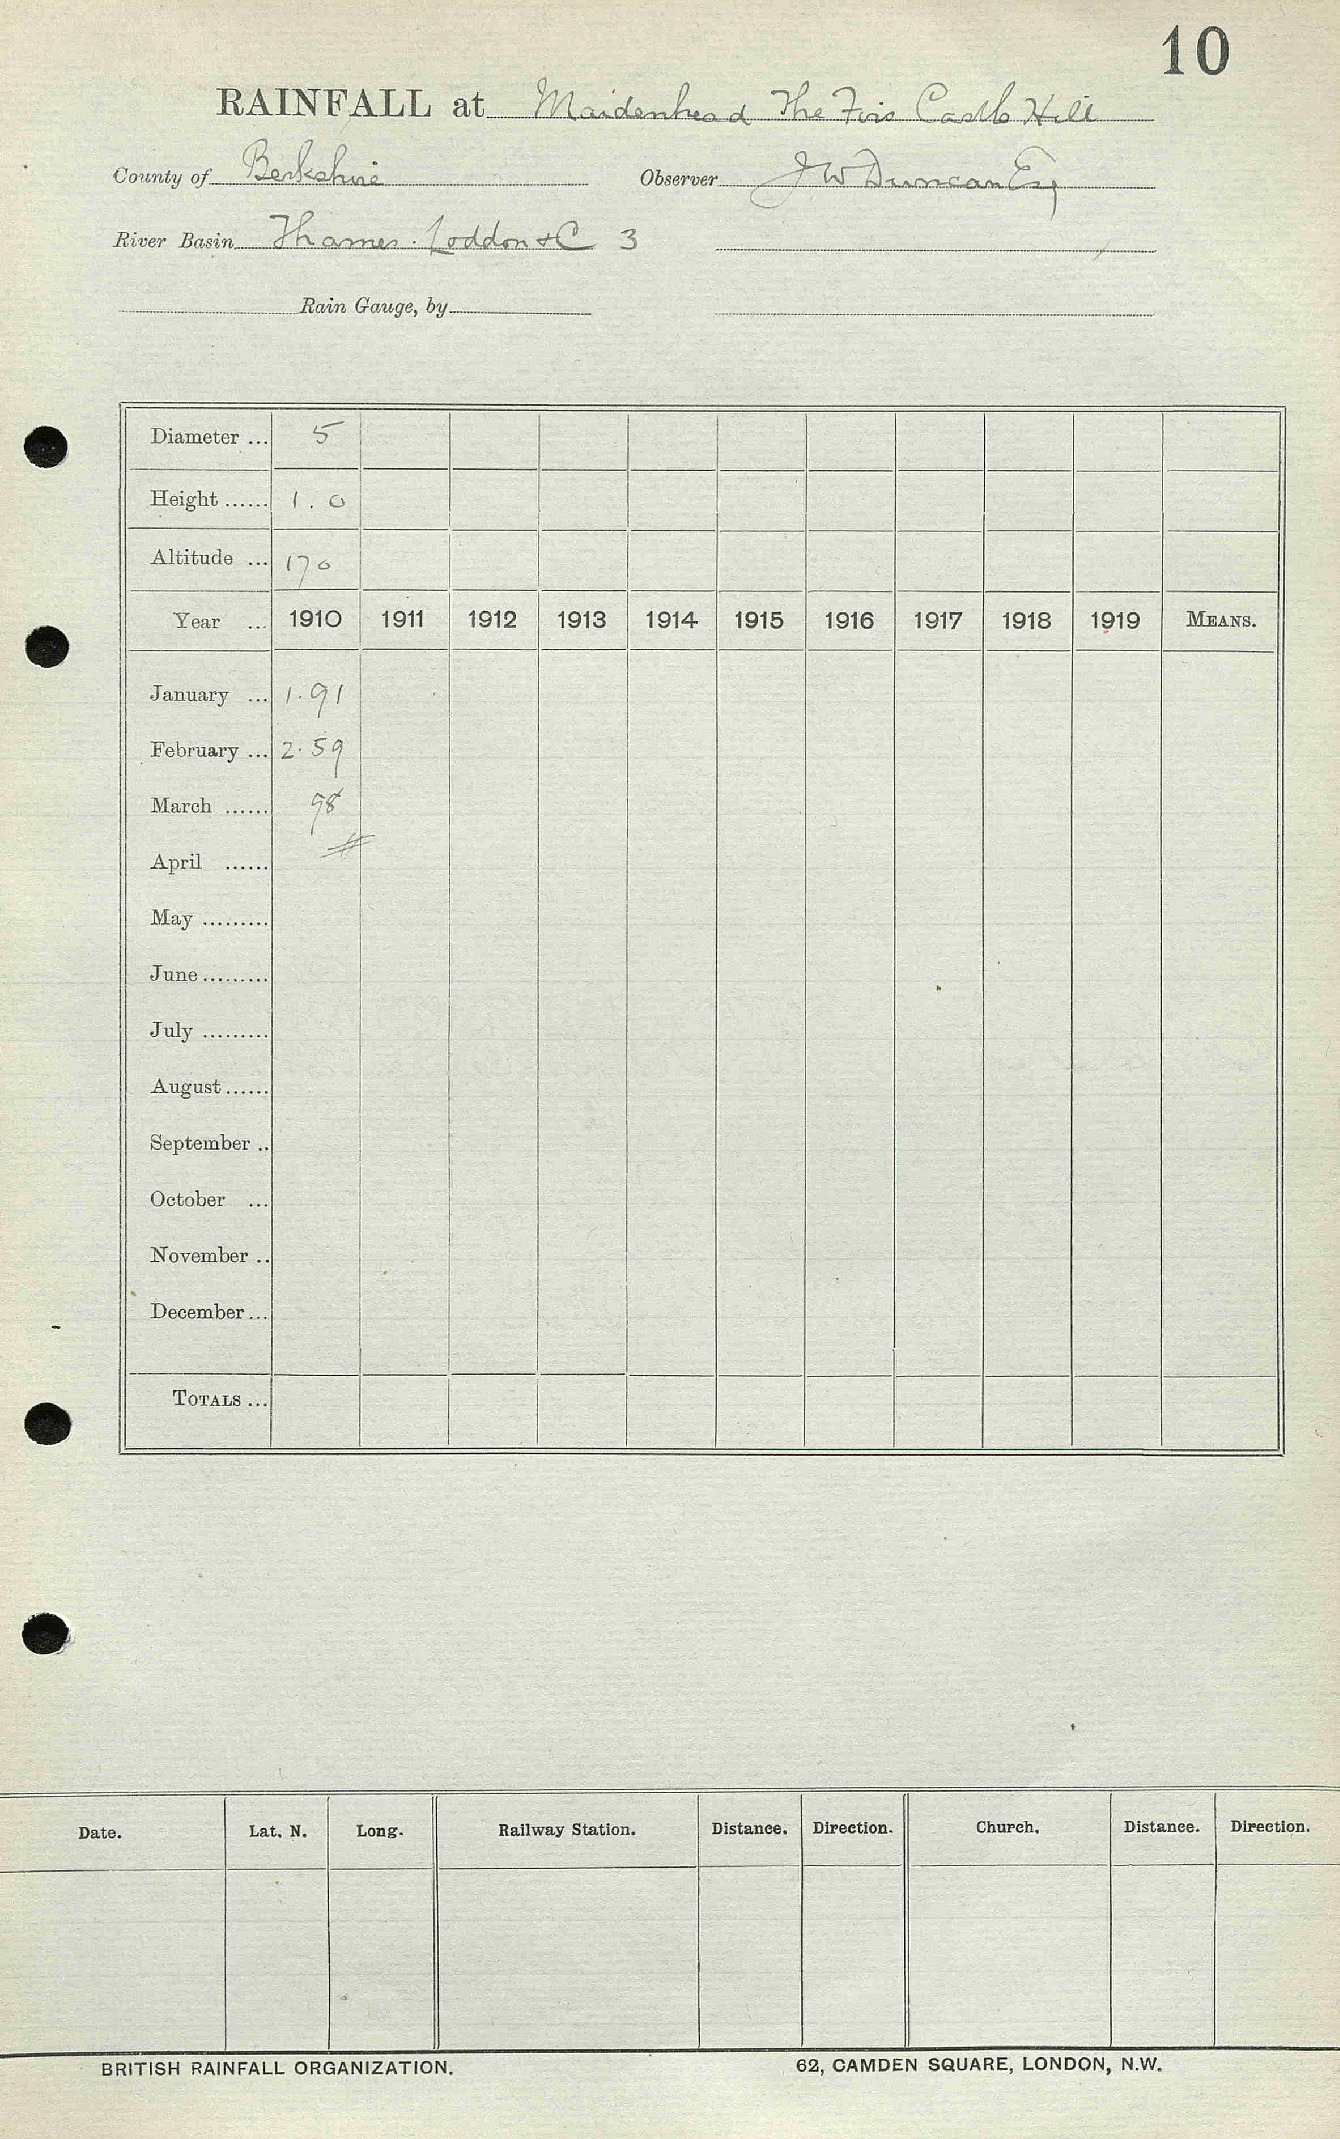 10
RAINFALL at Maidenhead The Firs Castle Hill
County of Berkshire Observer J W Duncan Esq
River Basin Thames. Loddon & C 3
Rain Gauge, by
Diameter ... 5
Height ...... 1.0
Altitude ... 170
Year ... 1910 1911 1912 1913 1914 1915 1916 1917 1918 1919 MEANS.
January ... 1.91
February ... 2.59
March ...... 98
April ......
May .........
June .........
July .........
August ......
September ..
October ...
November ..
December ...
TOTALS ...
Date. Lat. N. Long. Railway Station. Distance. Direction. Church. Distance. Direction.
BRITISH RAINFALL ORGANIZATION. 62, CAMDEN SQUARE, LONDON, N.W.